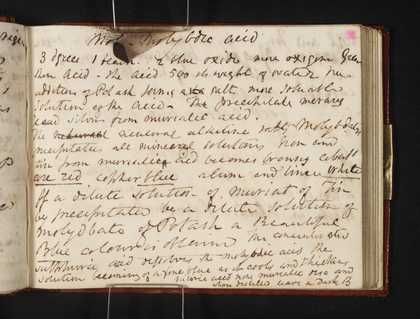 Mol - Molybdic acid
3 dgrees 1 brown 2 blue oxide more oxigen Green
then Acid - the acid 500 its weight of water
addition of Potash forms a salt more soluable
solution of the Acid. The precipitates mercury
lead silver from muriatic acid.
The neutral alkaline salts Molybdates
precipitates all mineral solutions Iron and
tin from muriatic acid becomes brown cobalt
are red copper blue alum and lime white
If a dilute solution of muriat of Tin
be precipitated by a dilute solution of
Molydbate of Potash a Beautiful
Blue colour is obtained The concentrated
sulphuric acid dissolves the molybdic acid the
solution becoming of a fine blue as it cools and thickens
muriatic acid also and
when distilled leave a dark B